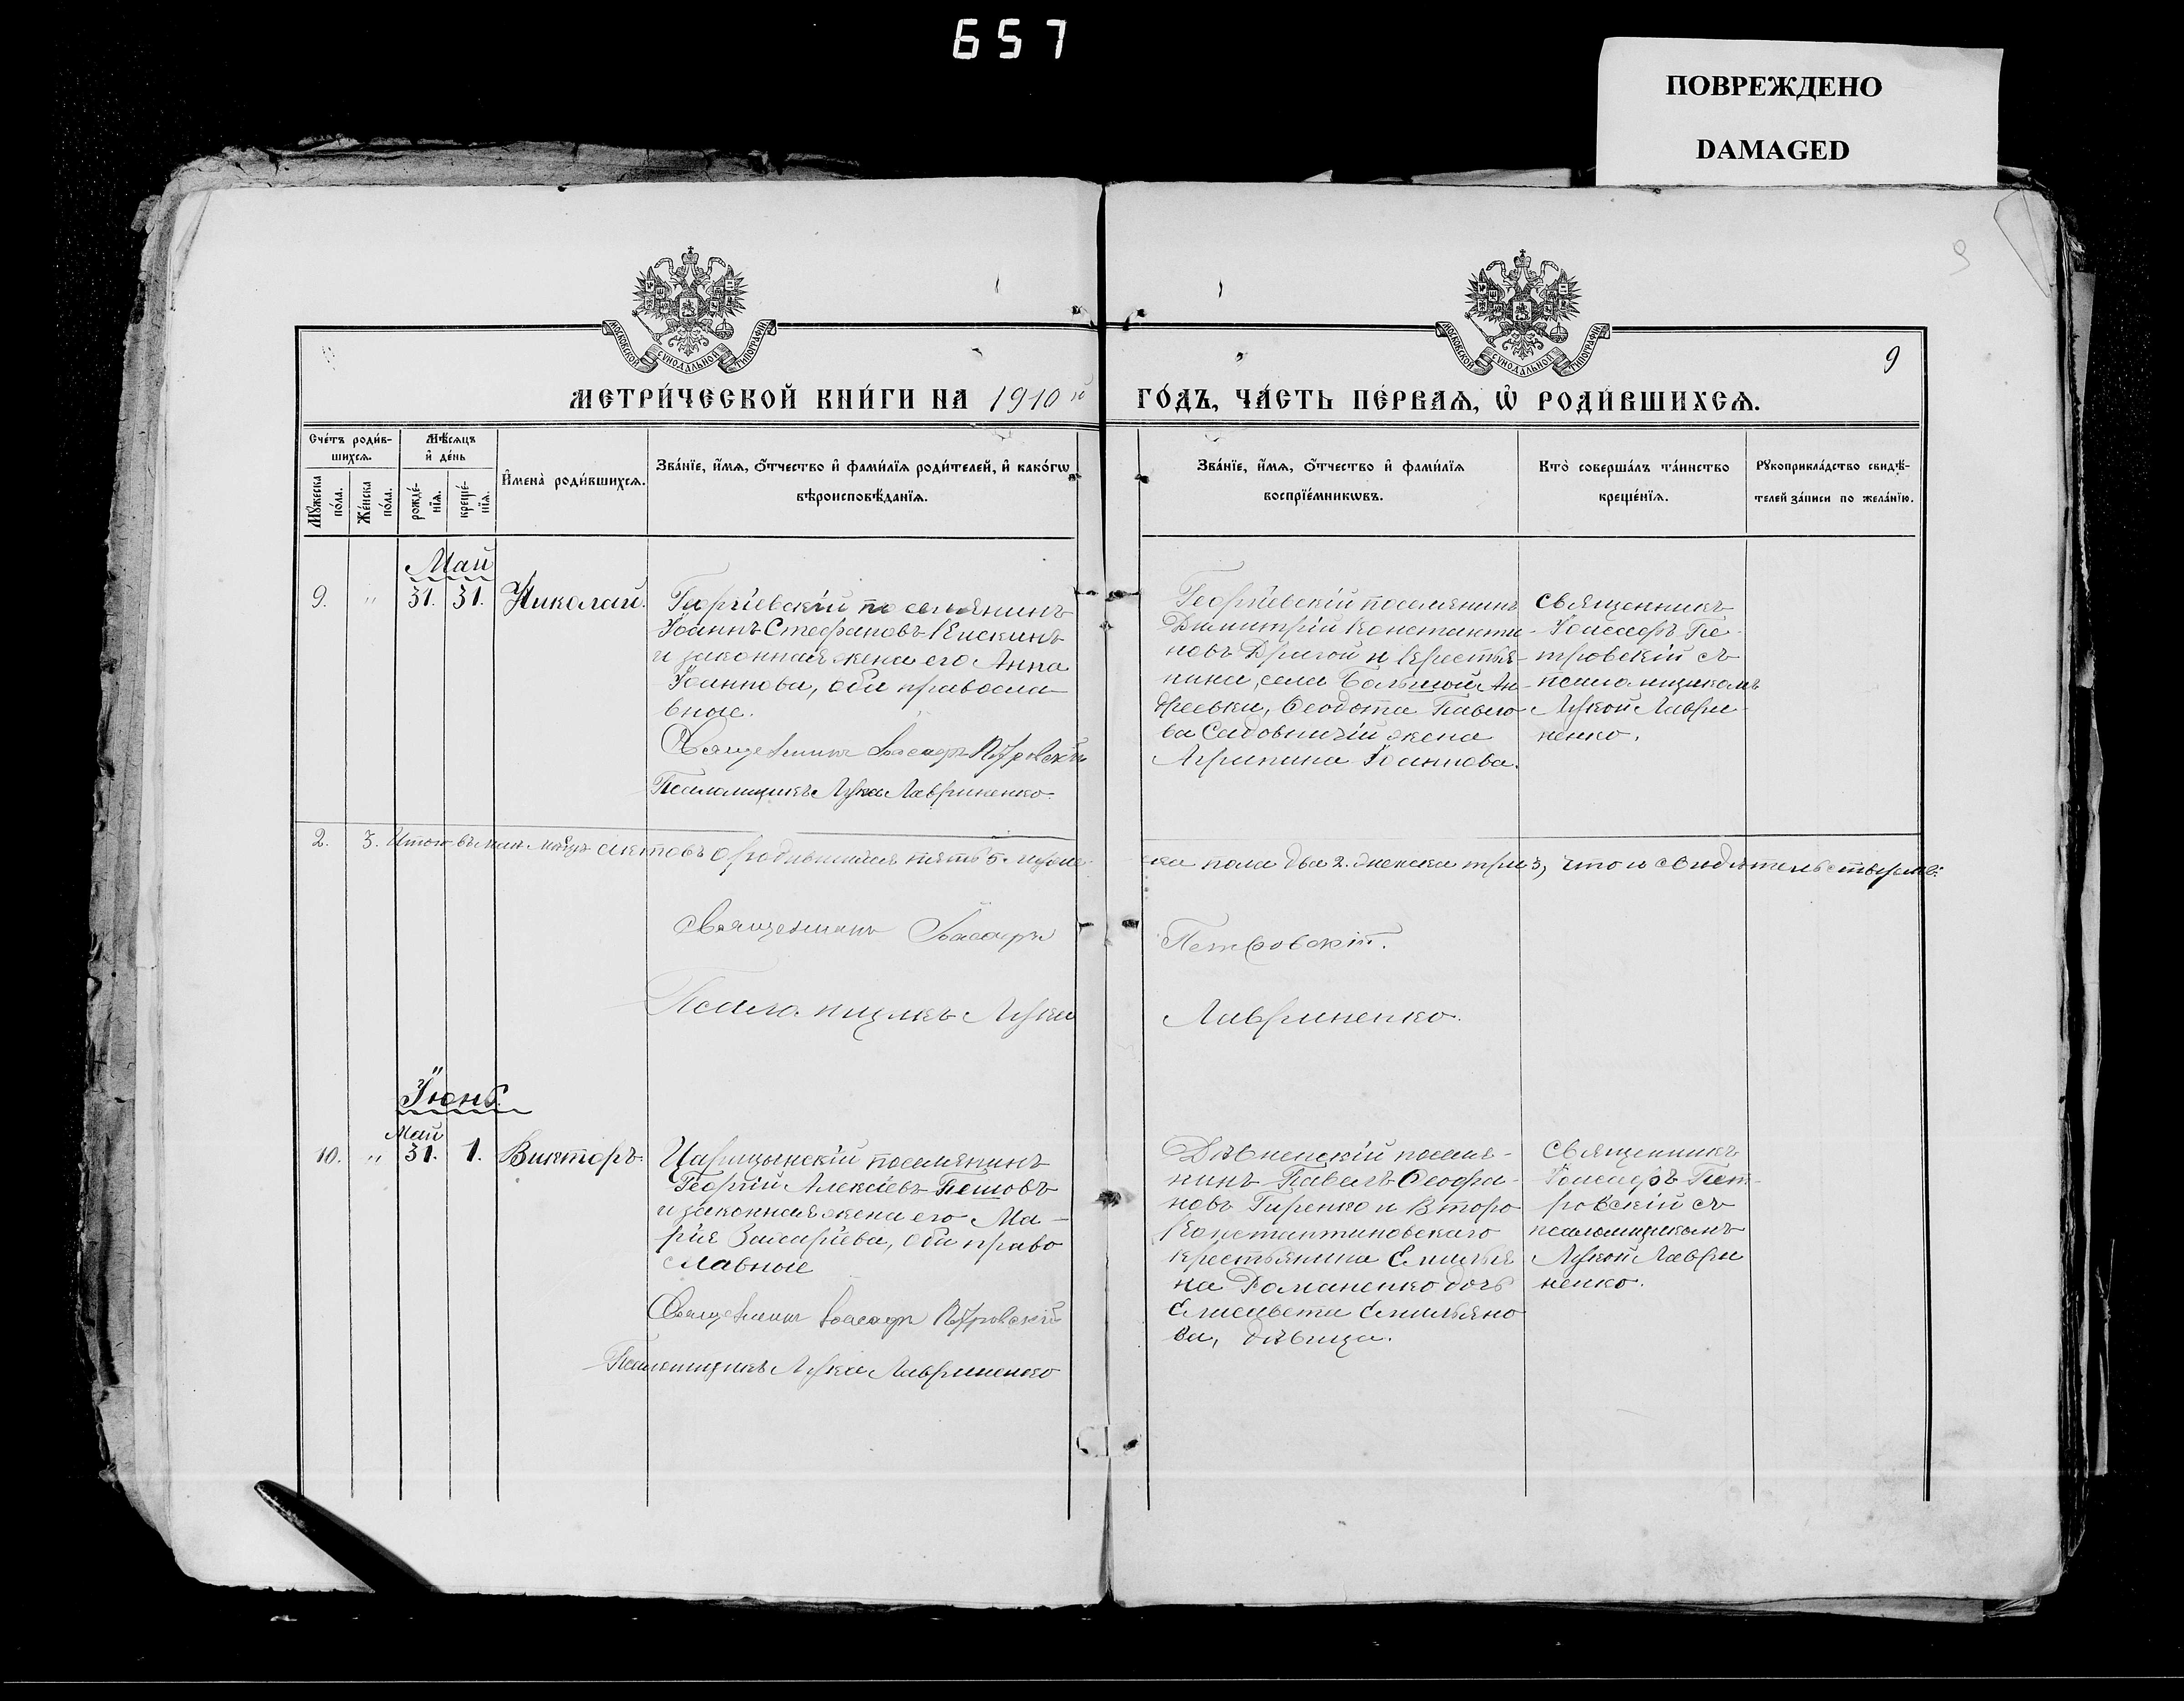 657
ПОВРЕЖДЕНО
DAMAGED
9
9
МОСКОВСКОЙ СѴНОДАЛЬНОЙ ТИПОГРАФІИ
МОСКОВСКОЙ СѴНОДАЛЬНОЙ ТИПОГРАФІИ
МЕТРИ́ЧЕСКОЙ КНИ́ГИ НА 1910 й ГО́ДЪ, ЧА́СТЬ ПЕ́РВАѦ, Ѡ҆ РОДИ́ВШИХСѦ.
Сче́тъ роди́в-
шихсѧ.
Мꙋ́жеска по́ла.
Же́нска по́ла.
Мѣ́сѧцъ
и҆ де́нь
рожде́-
нїѧ.
креще́-
нїѧ.
И҆мена̀ роди́вшихсѧ.
Зва́нїе, и҆́мѧ, ѻ҆́тчество и҆ фами́лїѧ роди́телей, и҆ како́гѡ
вѣроисповѣ́данїѧ.
Зва́нїе, и҆́мѧ, ѻ҆́тчество и҆ фами́лїѧ
воспрїе́мникѡвъ.
Кто̀ соверша́лъ та́инство
креще́нїѧ.
Рꙋкоприкла́дство свидѣ́-
телей за́писи по жела́нїю.
Май
9. " 31. 31. Николай.
Георгіевскій поселянинъ
Іоаннъ Стефановъ Кискинъ
и законная жена его Анна
Іоаннова, оба правосла-
вные.
Священникъ Іоасафъ Петровскій
Псаломщикъ Лука Лавриненко.
Георгіевскій поселянинъ
Димитрій Константи-
новъ Драгой и крестья-
нина, села Большой Ан-
дреевки, Ѳеодота Павло-
ва жена
Агрипина Іоаннова.
священникъ
Іоасафъ Пе-
тровскій съ
псаломщикомъ
Лукой Лаври-
ненко.
2. 3. Итого въ мѣс. актовъ о родившихся пять 5. муже-
ска пола два 2. женска три 3, что и свидѣтельствуемъ:
Священникъ Іоасафъ Петровскій.
Псаломщикъ Лука Лавриненко.
Іюнь.
Май
10. " 31. 1. Викторъ.
Царицынскій поселянинъ
Георгій Алексіевъ Пешовъ
и законная жена его Ма-
рія Захаріева, оба право
славные
Священникъ Іоасафъ Петровскій
Псаломщикъ Лука Лавриненко
Дѣвненскій поселя-
нинъ Павелъ Ѳеофа-
новъ Гиренко и Второ
Константиновскаго
крестьянина Емилья
на Романенко дочь
Елисавета Емильяно
ва, дѣвица.
священникъ
Іоасафъ Пет-
ровскій съ
псаломщикомъ
Лукой Лаври
ненко.